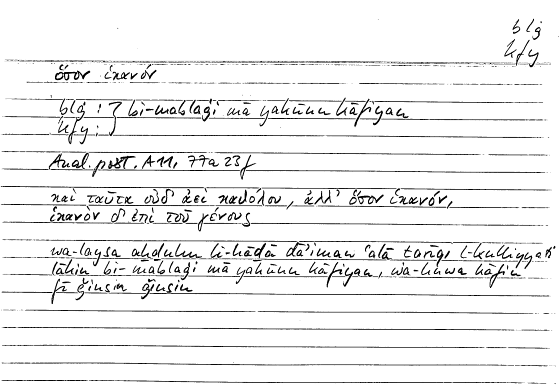 blġ
kfy
ὅσον ἱκανόν
blġ : } bi-mablaġi mā yakūnu kāfiyan
kfy :
Anal. post. A11, 77a23f
καὶ ταῦτα οὐδ' ἀεὶ καθόλου, ἀλλ' ὅσον ἱκανόν,
ἱκανὸν δ' ἐπὶ τοῦ γένους
wa-laysa aḫduhu li-hāḏā dā'iman ʿalā ṭarīqi l-kulliyyati
lākin bi-mablaġi mā yakūnu kāfiyan, wa-huwa kāfin
fī ǧinsin ǧinsin